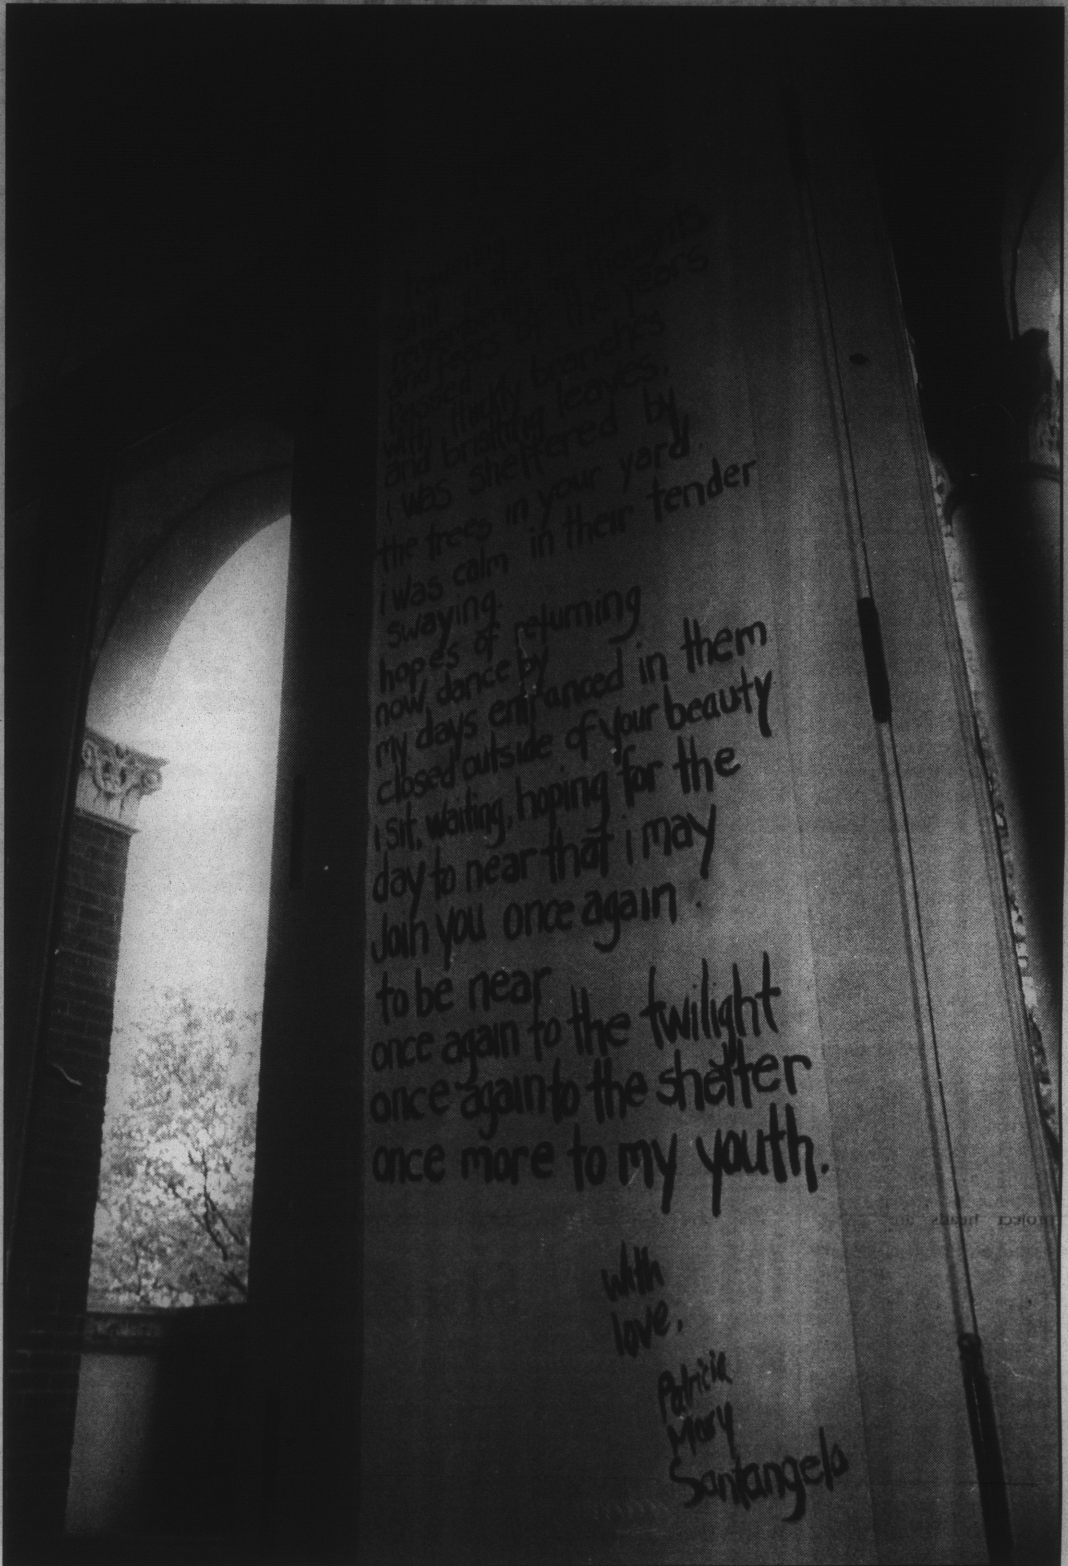 still
of the years
passed
with thickly branches
and bristling leaves,
i was sheltered by
the trees in your yard.
i was calm in their tender
swaying.
hopes of returning
now dance by
my days entranced in them
closed outside of your beauty
i sit, waiting, hoping for the
day to near that i may
Join you once again.
to be near
once again to the twilight
once again to the shelter
once more to my youth.
with
love,
Patricia
Mary
Santangelo